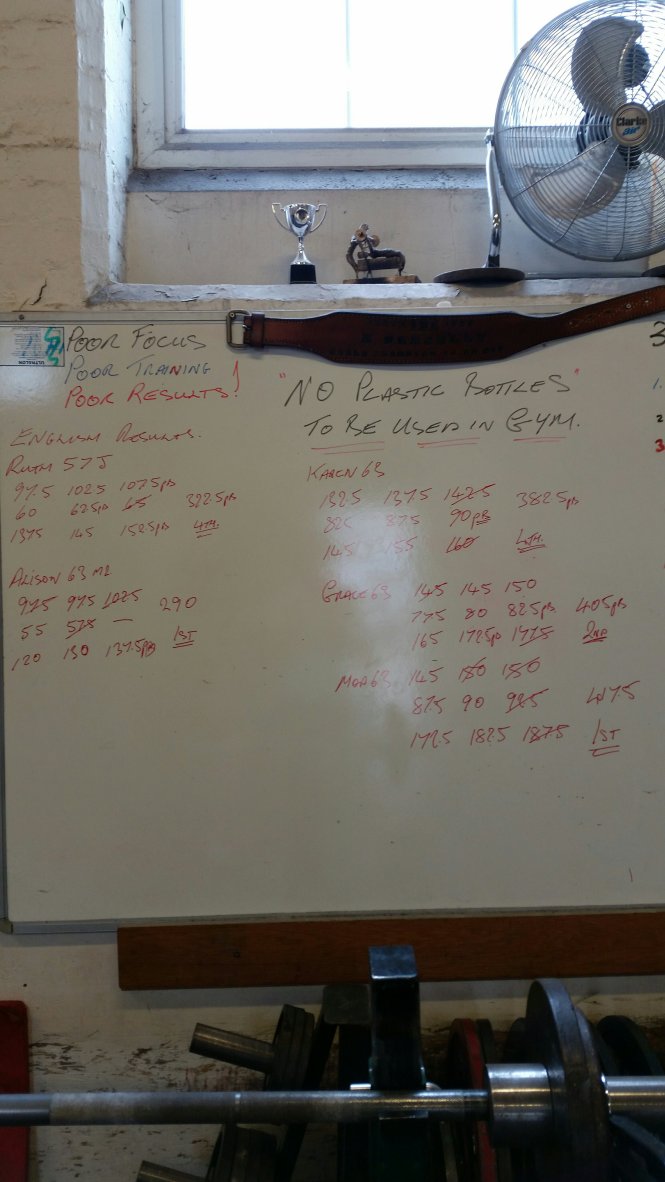 Clarke
air
POOR FOCUS
POOR TRAINING
POOR RESULTS!
"NO PLASTIC BOTTLES"
TO BE USED IN GYM.
ENGLISH RESULTS.
RUTH 57J
97.5 102.5 107.5pb
60 62.5pb 65 322.5pb
137.5 145 152.5pb 4TH
ALISON 63 M2
97.5 97.5 102.5
55 57.5 — 290
120 130 137.5pb 1ST
KAREN 63
132.5 137.5 142.5 382.5pb
82.5 87.5 90pb
145 155 160 4TH.
GRACE 63 145 145 150
77.5 80 82.5pb 405pb
165 172.5pb 177.5 2ND
MOA 63 145 150 150
87.5 90 92.5 417.5
172.5 182.5 187.5 1ST
3
1.
2
3